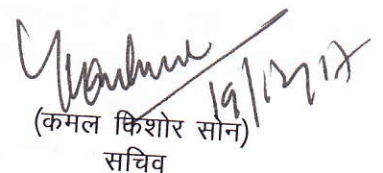 19/12/17
(कमल किशोर सोन)
सचिव